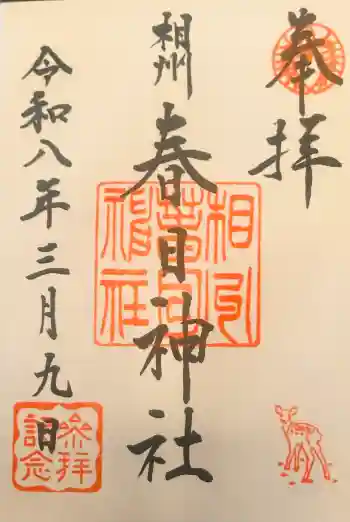 奉拝
相州
春日神社
相州春日神社
令和八年三月九日
参拝記念